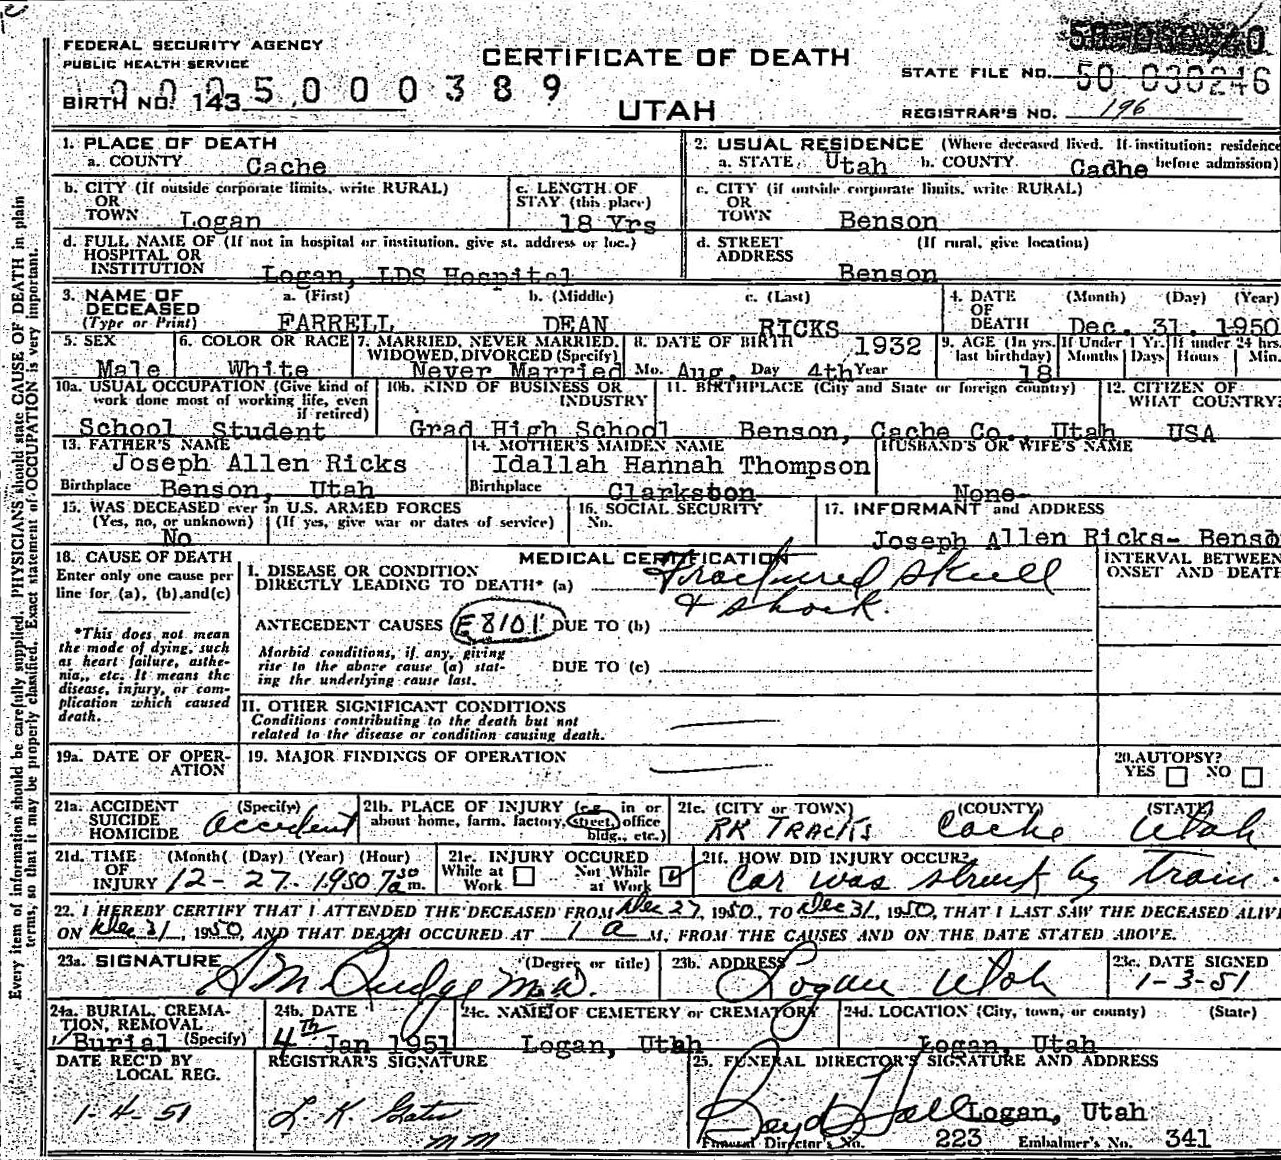 FEDERAL SECURITY AGENCY
PUBLIC HEALTH SERVICE
CERTIFICATE OF DEATH
STATE FILE NO. 50 030246
BIRTH NO. 143
5,000389
UTAH
REGISTRAR'S NO. 196
Every item of information should be carefully supplied. PHYSICIANS should state CAUSE OF DEATH in plain
terms, so that it may be properly classified. Exact statement of OCCUPATION is very important.
1. PLACE OF DEATH
a. COUNTY Cache
2. USUAL RESIDENCE (Where deceased lived. If institution: residence
a. STATE Utah b. COUNTY Cache before admission)
b. CITY (If outside corporate limits, write RURAL)
OR
TOWN Logan
c. LENGTH OF
STAY (this place)
18 Yrs
c. CITY (if outside corporate limits, write RURAL)
OR
TOWN Benson
d. FULL NAME OF (If not in hospital or institution, give st. address or loc.)
HOSPITAL OR
INSTITUTION Logan, LDS Hospital
d. STREET (If rural, give location)
ADDRESS
Benson
3. NAME OF DECEASED
(Type or Print)
a. (First) b. (Middle) c. (Last)
FARRELL DEAN RICKS
4. DATE OF DEATH (Month) (Day) (Year)
Dec. 31, 1950
5. SEX
Male
6. COLOR OR RACE
White
7. MARRIED, NEVER MARRIED,
WIDOWED, DIVORCED (Specify)
Never Married
8. DATE OF BIRTH 1932
Mo. Aug. Day 4th Year
9. AGE (In yrs. last birthday) 18
If Under 1 Yr. Months Days
If under 24 hrs. Hours Min.
10a. USUAL OCCUPATION (Give kind of
work done most of working life, even
if retired)
School Student
10b. KIND OF BUSINESS OR
INDUSTRY
Grad High School
11. BIRTHPLACE (City and State or foreign country)
Benson, Cache Co. Utah
12. CITIZEN OF
WHAT COUNTRY?
USA
13. FATHER'S NAME
Joseph Allen Ricks
Birthplace Benson, Utah
14. MOTHER'S MAIDEN NAME
Idallah Hannah Thompson
Birthplace Clarkston
HUSBAND'S OR WIFE'S NAME
None-
15. WAS DECEASED ever in U.S. ARMED FORCES
(Yes, no, or unknown) (If yes, give war or dates of service)
No
16. SOCIAL SECURITY
No.
17. INFORMANT and ADDRESS
Joseph Allen Ricks- Benso
18. CAUSE OF DEATH
Enter only one cause per
line for (a), (b), and (c)
*This does not mean
the mode of dying, such
as heart failure, asthe-
nia, etc. It means the
disease, injury, or com-
plication which caused
death.
MEDICAL CERTIFICATION
I. DISEASE OR CONDITION
DIRECTLY LEADING TO DEATH* (a) Fractured skull
& shock.
ANTECEDENT CAUSES E8101 DUE TO (b)
Morbid conditions, if any, giving
rise to the above cause (a) stat-
ing the underlying cause last.
DUE TO (c)
II. OTHER SIGNIFICANT CONDITIONS
Conditions contributing to the death but not
related to the disease or condition causing death.
INTERVAL BETWEEN
ONSET AND DEATH
19a. DATE OF OPER-
ATION
19. MAJOR FINDINGS OF OPERATION
20. AUTOPSY?
YES NO
21a. ACCIDENT (Specify)
SUICIDE
HOMICIDE
accident
21b. PLACE OF INJURY (e.g. in or
about home, farm, factory, street, office
bldg., etc.)
21c. (CITY or TOWN) (COUNTY) (STATE)
RR TRACKS Cache Utah
21d. TIME (Month) (Day) (Year) (Hour)
OF
INJURY 12-27-1950 7:30 am.
21e. INJURY OCCURED
While at Work
Not While at Work
21f. HOW DID INJURY OCCUR?
Car was struck by train.
22. I HEREBY CERTIFY THAT I ATTENDED THE DECEASED FROM Dec 27, 1950, TO Dec 31, 1950, THAT I LAST SAW THE DECEASED ALIV
ON Dec 31, 1950, AND THAT DEATH OCCURED AT 1 a M., FROM THE CAUSES AND ON THE DATE STATED ABOVE.
23a. SIGNATURE (Degree or title)
S M Budge M.D.
23b. ADDRESS
Logan Utah
23c. DATE SIGNED
1-3-51
24a. BURIAL, CREMA-
TION, REMOVAL
Burial (Specify)
24b. DATE
4th Jan 1951
24c. NAME OF CEMETERY or CREMATORY
Logan, Utah
24d. LOCATION (City, town, or county) (State)
Logan, Utah
DATE REC'D BY
LOCAL REG.
1-4-51
REGISTRAR'S SIGNATURE
25. FUNERAL DIRECTOR'S SIGNATURE AND ADDRESS
Boyd Hall Logan, Utah
Funeral Director's No. 223 Embalmer's No. 341